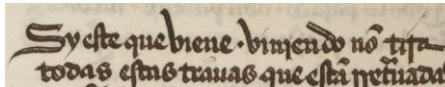 Sy este que biene · biniendo nõ tira
todas estas trauas que estã